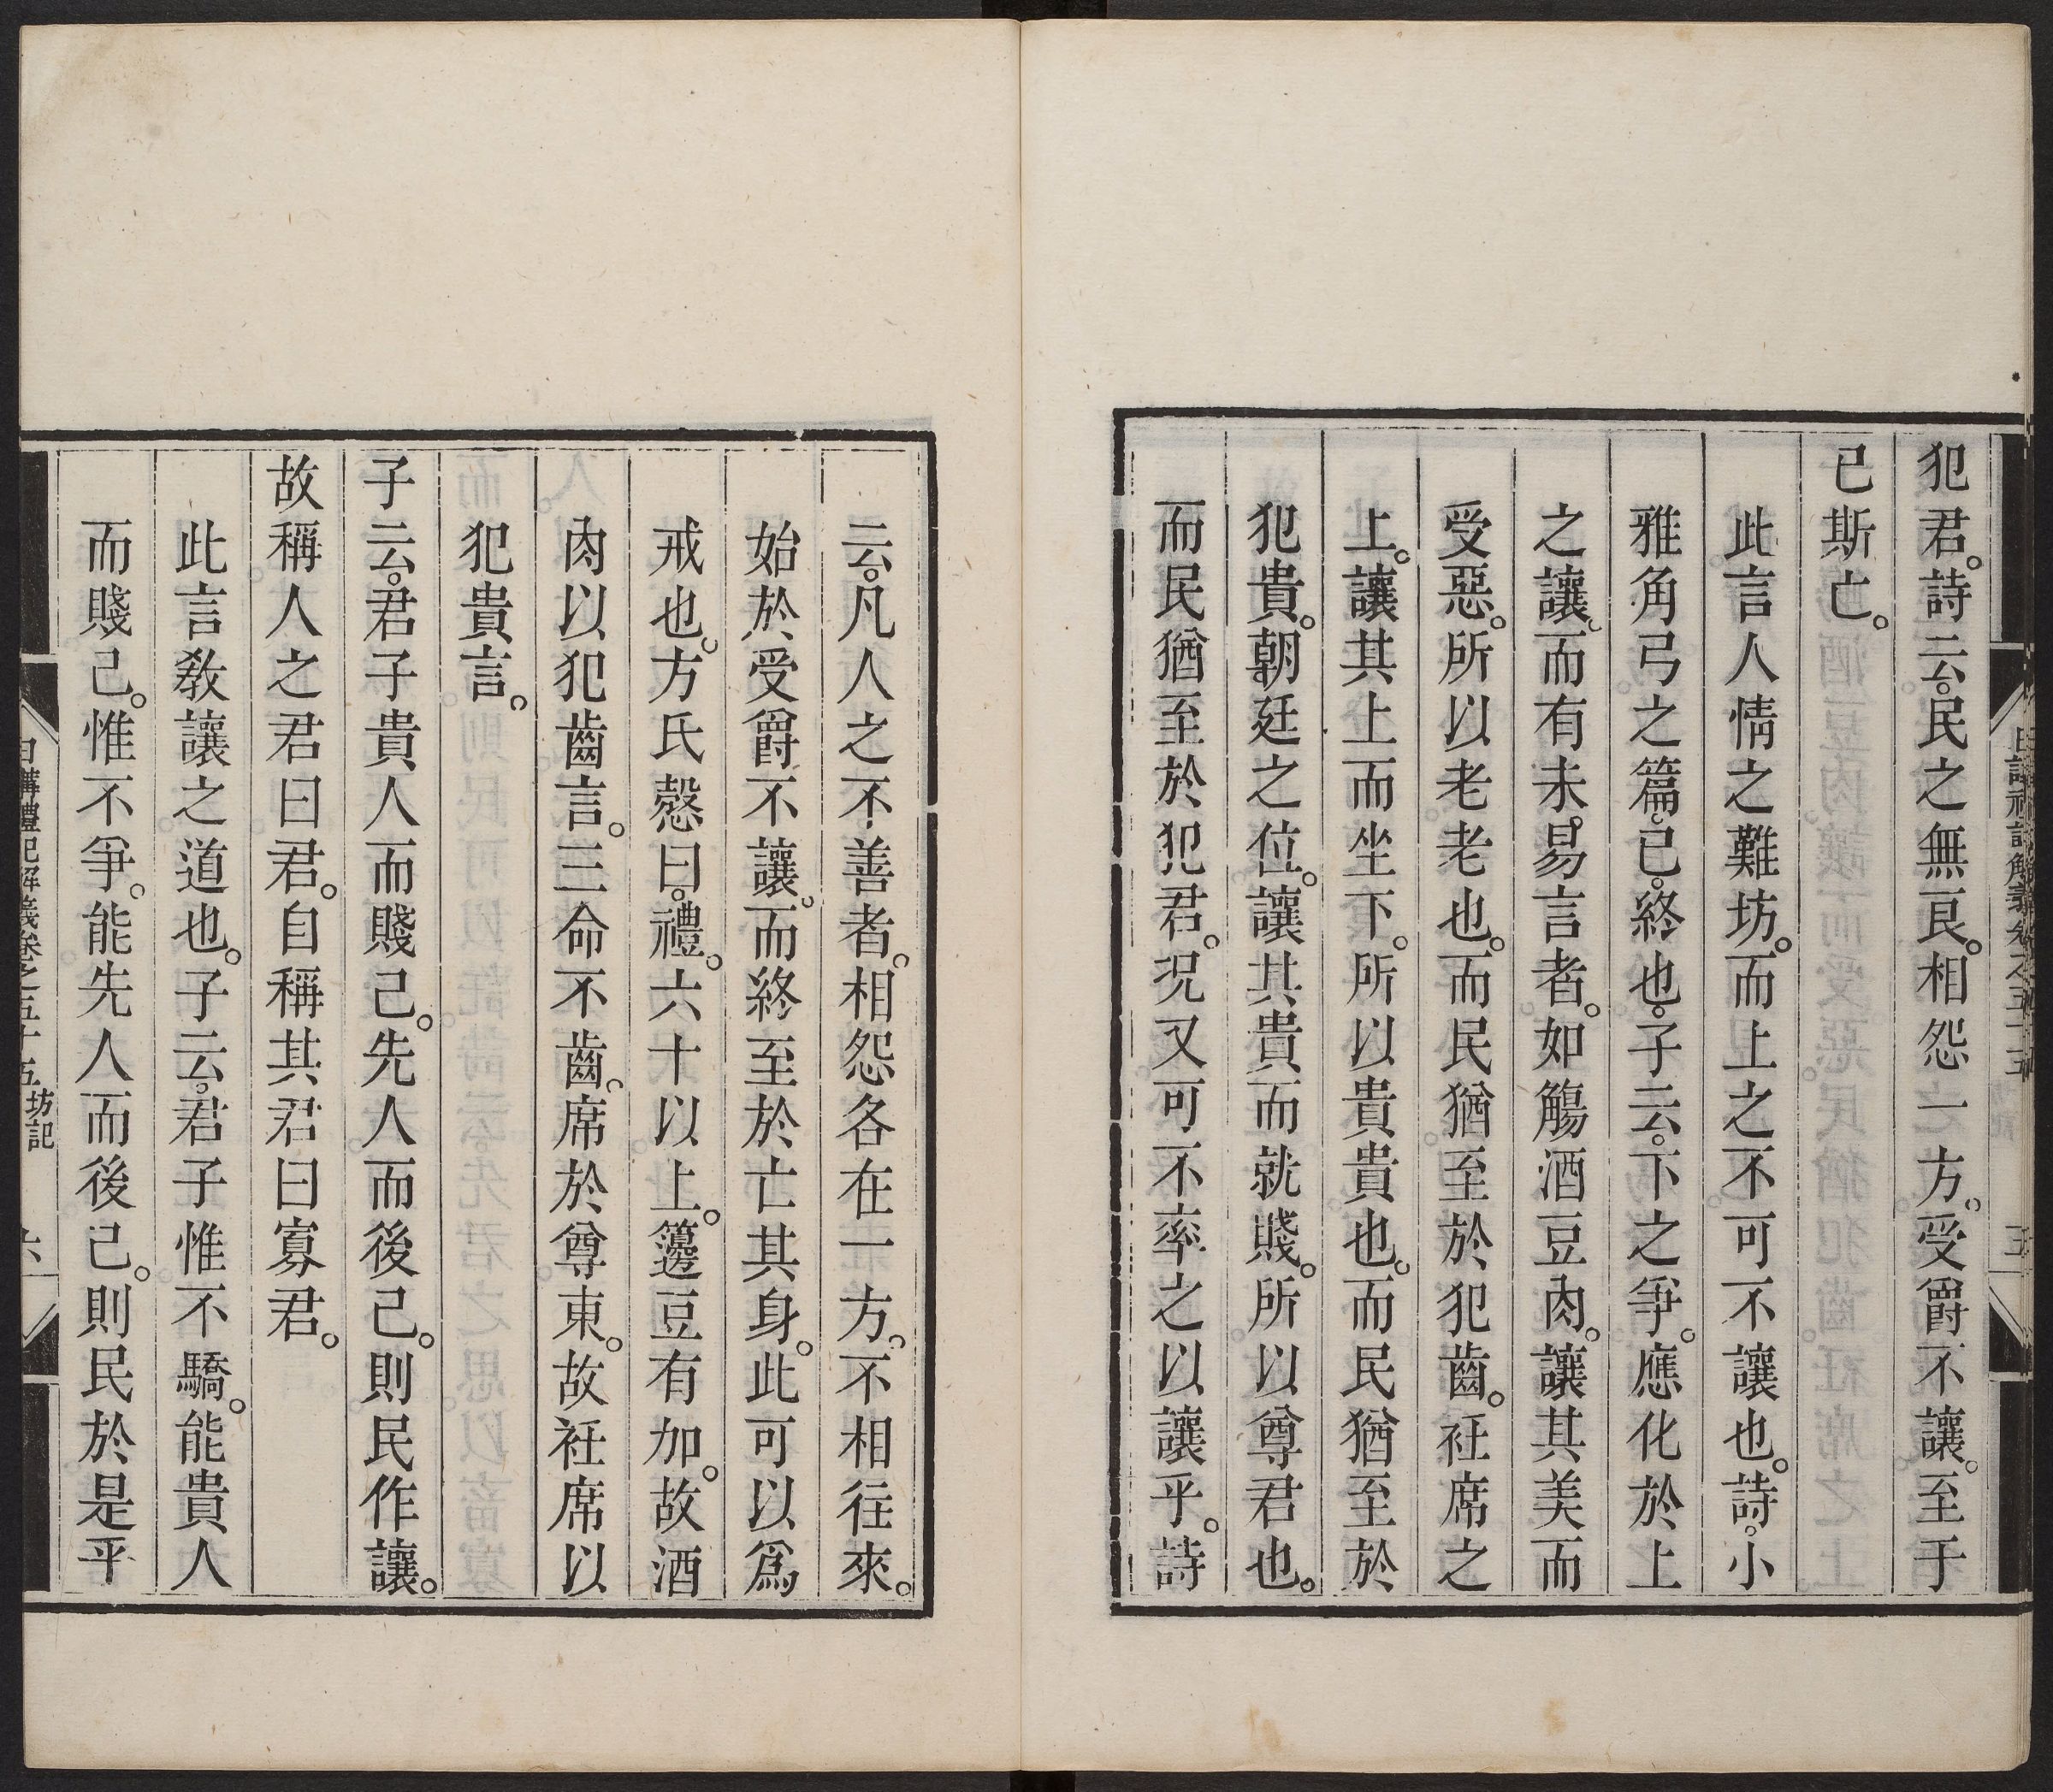 犯君。詩云。民之無良。相怨一方。受爵不讓。至于
已斯亡。
此言人情之難坊。而上之不可不讓也。詩。小
雅角弓之篇。已。終也。子云。下之爭。應化於上
之讓。而有未易言者。如觴酒豆肉。讓其美而
受惡。所以老老也。而民猶至於犯齒。衽席之
上。讓其上而坐下。所以貴貴也。而民猶至於
犯貴。朝廷之位。讓其貴而就賤。所以尊君也。
而民猶至於犯君。況又可不率之以讓乎。詩
云。凡人之不善者。相怨各在一方。不相往來。
始於受爵不讓。而終至於亡其身。此可以爲
戒也。方氏慤曰。禮。六十以上。籩豆有加。故酒
肉以犯齒言。三命不齒。席於尊東。故衽席以
犯貴言。
子云。君子貴人而賤己。先人而後己。則民作讓。
故稱人之君曰君。自稱其君曰寡君。
此言敎讓之道也。子云。君子惟不驕。能貴人
而賤己。惟不爭。能先人而後己。則民於是乎
日講禮記解義卷之五十五 坊記 六